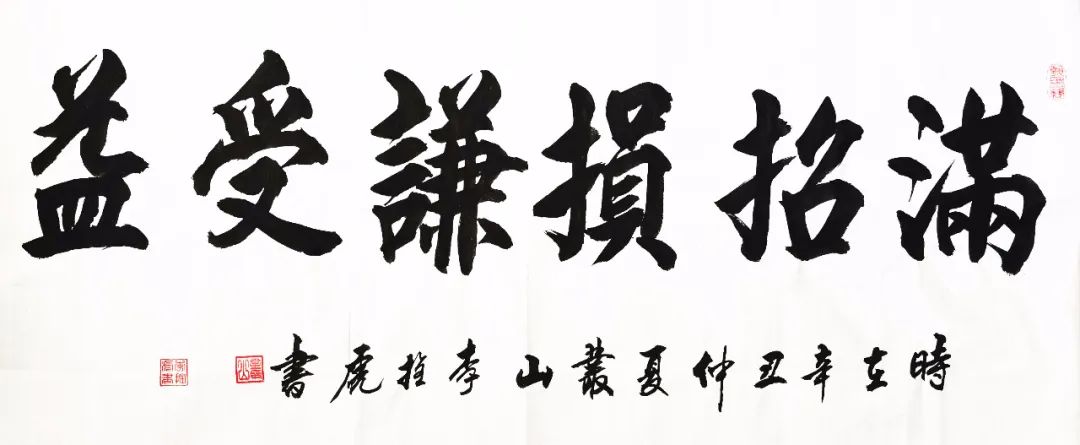 滿招損謙受益
時在辛丑仲夏叢山李拴虎書